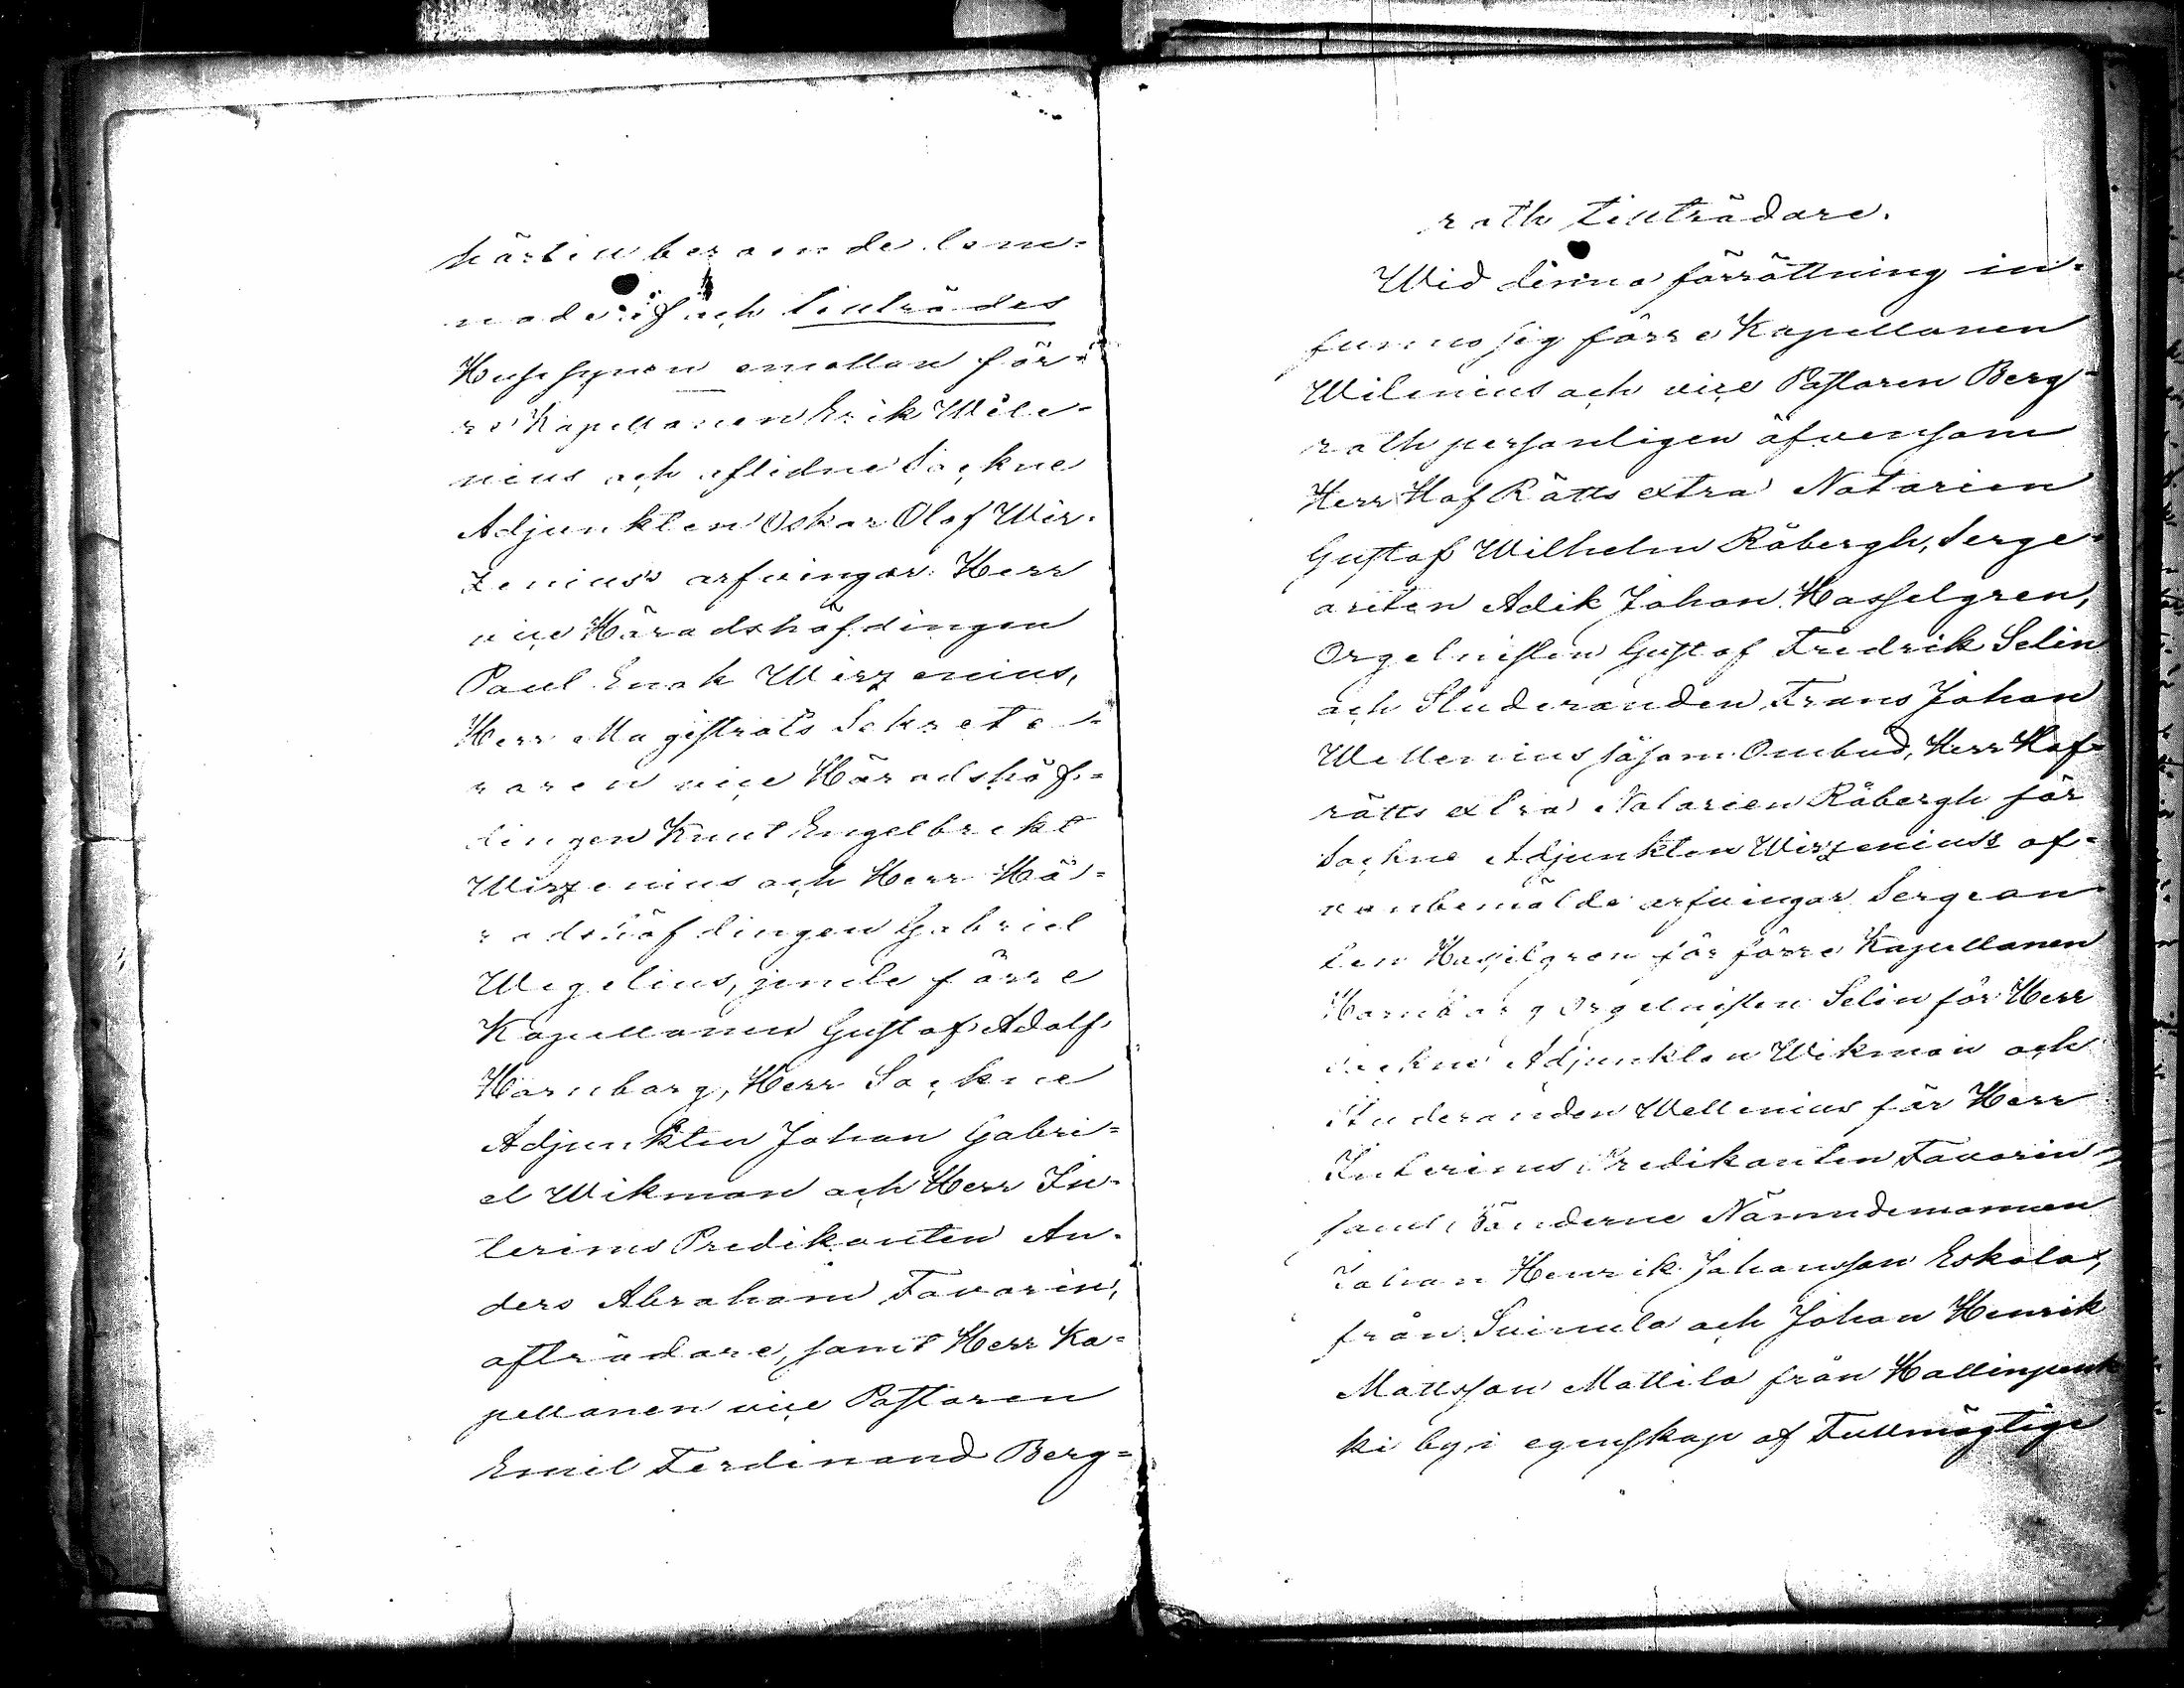 härtill berömde lem¬
nade af och tillträdes
Husesynen emellan för¬
re Kapellanen Erik Wile¬
nius och aflidne Sockne
Adjunkten Oskar Olof Wir¬
zenius's arfvingar Herr
vice Häradshöfdingen
Paul Enok Wirzenius,
Herr Magistrats Sekrete¬
raren vice Häradshöf¬
dingen Knut Engelbrekt
Wirzenius och Herr Hä¬
radshöfdingen Gabriel
Wegelius, jemte förre
Kapellanen Gustaf Adolf
Hornborg, Herr Sockne
Adjunkten Johan Gabri¬
el Wikman och Herr In¬
terims Predikanten An¬
ders Abraham Favorin,
afträdare, samt Herr Ka¬
pellanen vice Pastoren
Emil Ferdinand Berg¬
roth tillträdare.
Wid denna förrättning in¬
funno sig förre Kapellanen
Wilenius och vice Pastoren Berg¬
roth personligen äfvensom
Herr Hof Rätts extra Notarien
Gustaf Wilhelm Råbergh, Serge¬
anten Adik Johan Hasselgren,
Orgelnisten Gustaf Fredrik Selin
och Studeranden Frans Johan
Wellenius såsom Ombud, Herr Hof¬
rätts extra Notarien Råbergh för
Sockne Adjunkten Wirzenius's of¬
vanbemälde arfvingar Sergean
ten Hasselgren för förre Kapellanen
Hornborg Orgelnisten Selin för Herr
Sockne Adjunkten Wikman och
Studeranden Wellenius för Herr
Interims Predikanten Favorin,
samt Bönderne Nämndemannen
Johan Henrik Johansson Eskola,
från Suinula och Johan Henrik
Mattsson Mattila från Hallinpenk
ki by, i egenskap af Fullmägtige